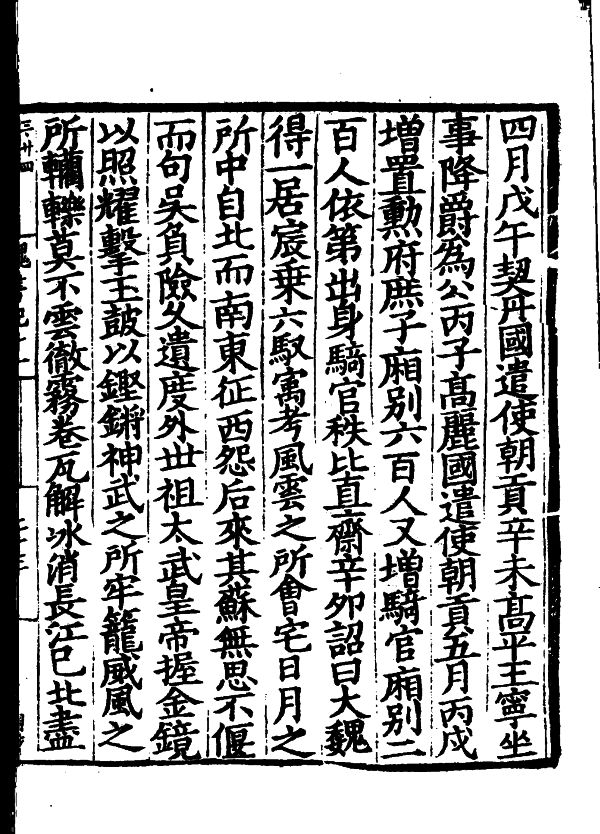 四月戊午契丹國遣使朝貢辛未髙平王寧坐
事降爵為公丙子髙麗國遣使朝貢五月丙戌
増置勲府庶子廂别六百人又増騎官廂别二
百人依第出身騎官秩比直齋辛卯詔曰大魏
得一居宸乗六馭㝢考風雲之所會宅日月之
所中自北而南東征西怨后來其蘇無思不偃
而句吳負險久遺度外世祖太武皇帝握金鏡
以照耀擊玉鼓以鏗鏘神武之所牢籠威風之
所轥轢莫不雲徹霧卷瓦解冰消長江已北盡